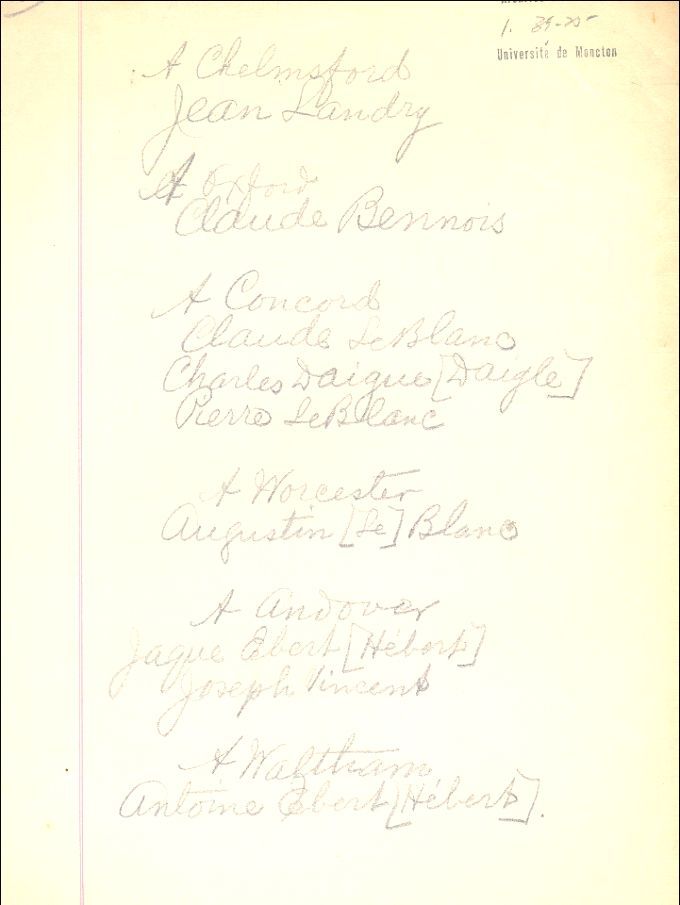 1. 39-25
Université de Moncton
A Chelmsford
Jean Landry
A Oxford
Claude Bennois
A Concord
Claude LeBlanc
Charles Daigue [Daigle]
Pierre LeBlanc
A Worcester
Augustin [Le] Blanc
A Andover
Jaque Ebert [Hébert]
Joseph Vincent
A Waltham
Antoine Ebert [Hébert].